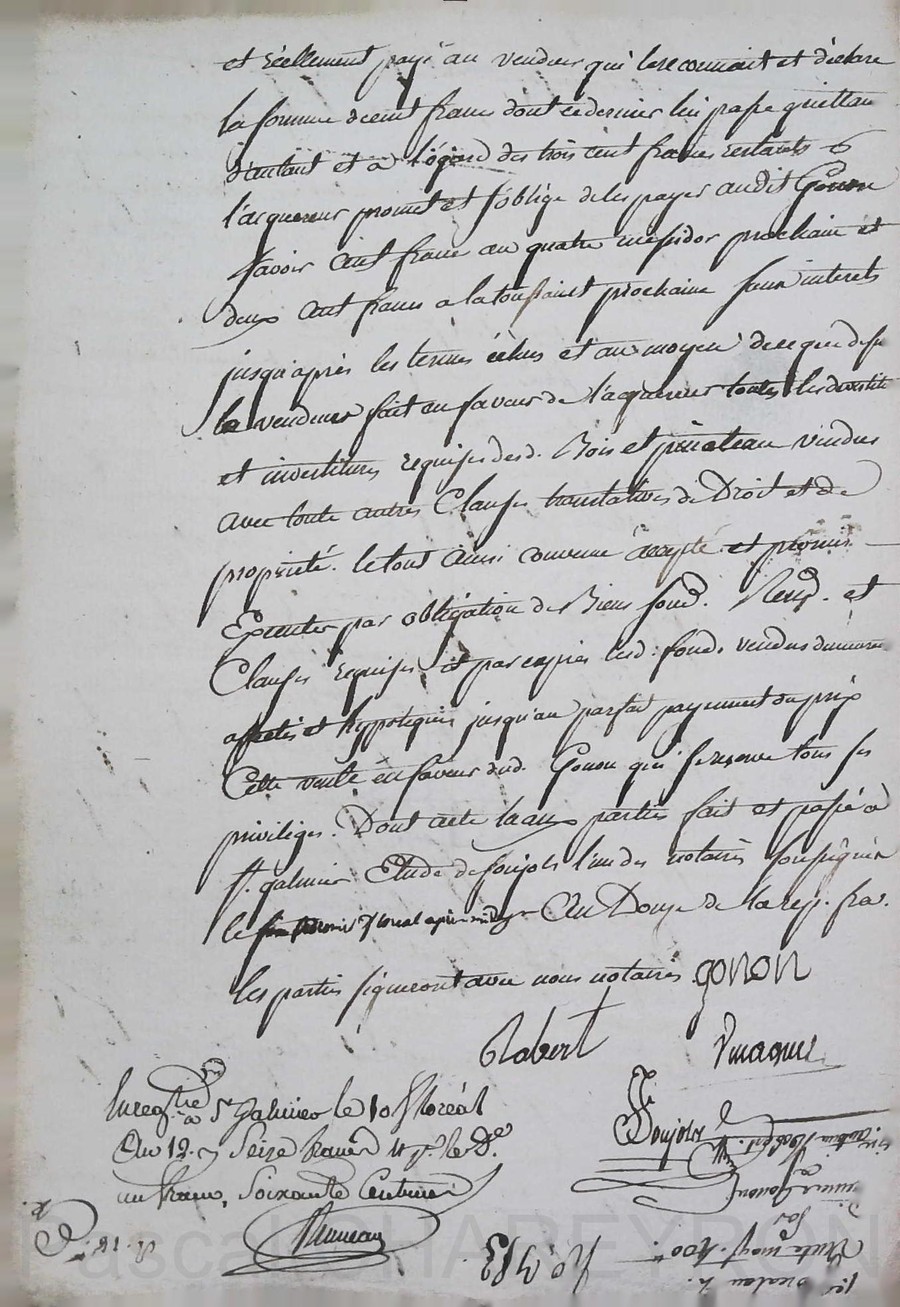 et réellement payé au vendeur qui le reconnait et déclare
la somme de cent francs dont ce dernier lui passe quittan
d'autant et a l'égard des trois cent francs restants
l'acquereur promet et s'oblige de les payer audit Gonon
savoir cent francs au quatre messidor prochain et
deux cent francs a la toussaint prochaine sans interets
jusqu'après les termes échus et au moyen de ce que dessu
le vendeur fait en faveur de l'acquereur toutes les devestit
et investitures requises desd. Bois et vendus
avec toute autres Clauses translatives de Droit et de
propriété. le tout ainsi convenu accepté et promis
Executer par obligation de Biens soud. Rend. et
Clauses requises et par exprès lesd. fonds vendus demeure
affectés et hypotequés jusqu'au parfait payement du prix
Cette vente en faveur dud. Gonon qui se reserve tous ses
privileges. Dont acte aux parties fait et passé à
St. galmier Etude de soujols l'un des notaires soussignés
le floreal après midy An Douze de la rep. fra.
les parties signeront avec nous notaires gonon
Robert
Enregistré à St Galmier le 10 floréal
An 12. Seize francs
un franc, Soixante Centimes
Soujols
No W 183
Pascal CHAREYRON